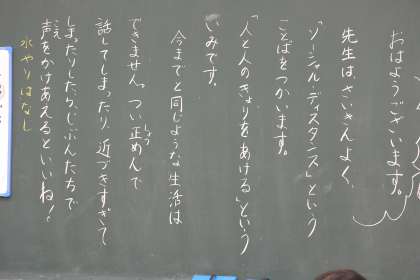 おはようございます。
先生は、さいきんよく、
「ソーシャルディスタンス」という
ことばをつかいます。
「人と人のきょりをあける」という
いみです。
今までと同じような生活は
できません。つい正めんで
しょう
話してしまったり、近づきすぎて
しまったりしたら、じぶんたちで
こえ
声をかけあえるといいね!
水やりはなし